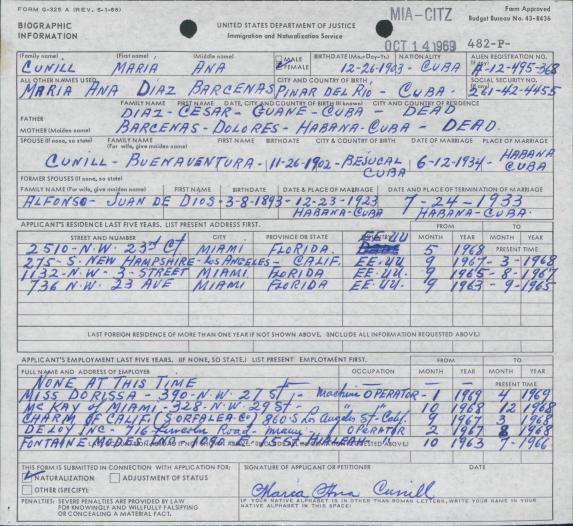 FORM G-325 A (REV. 5-1-68)
Form Approved
Budget Bureau No. 43-R436
MIA-CITZ
BIOGRAPHIC INFORMATION
UNITED STATES DEPARTMENT OF JUSTICE
Immigration and Naturalization Service
OCT 14 1969
482-P-
(Family name) (First name) (Middle name) MALE FEMALE BIRTHDATE (Mo.-Day-Yr.) NATIONALITY ALIEN REGISTRATION NO.
CUNILL MARIA ANA 12-26-1903 - CUBA A-12-495-368
ALL OTHER NAMES USED CITY AND COUNTRY OF BIRTH SOCIAL SECURITY NO.
MARIA ANA DIAZ BARCENAS PINAR DEL RIO - CUBA - 261-42-4455
FAMILY NAME FIRST NAME DATE, CITY AND COUNTRY OF BIRTH (If known) CITY AND COUNTRY OF RESIDENCE
FATHER DIAZ - CESAR - GUANE - CUBA - DEAD
MOTHER (Maiden name) BARCENAS - DOLORES - HABANA - CUBA - DEAD.
SPOUSE (If none, so state) FAMILY NAME (For wife, give maiden name) FIRST NAME BIRTHDATE CITY AND COUNTRY OF BIRTH DATE OF MARRIAGE PLACE OF MARRIAGE
CUNILL - BUENAVENTURA - 11-26-1902 - BEJUCAL CUBA 6-12-1934 - HABANA CUBA
FORMER SPOUSES (If none, so state)
FAMILY NAME (For wife, give maiden name) FIRST NAME BIRTHDATE DATE & PLACE OF MARRIAGE DATE AND PLACE OF TERMINATION OF MARRIAGE
ALFONSO - JUAN DE DIOS - 3-8-1893 - 12-23-1923 7-24-1933
HABANA-CUBA HABANA-CUBA.
APPLICANT'S RESIDENCE LAST FIVE YEARS. LIST PRESENT ADDRESS FIRST. FROM TO
STREET AND NUMBER CITY PROVINCE OR STATE MONTH YEAR MONTH YEAR
2510-N.W. 23rd CT MIAMI FLORIDA. EE.UU 5 1968 PRESENT TIME
275-S. NEW HAMPSHIRE - LOS ANGELES - CALIF. EE.UU. 9 1967 - 3 - 1968
1132-N.W - 3-STREET MIAMI. FLORIDA EE.UU. 9 1965 - 8 - 1967
736 N.W. 23 AVE MIAMI FLORIDA EE.UU. 9 1963 - 9 - 1965
LAST FOREIGN RESIDENCE OF MORE THAN ONE YEAR IF NOT SHOWN ABOVE. (INCLUDE ALL INFORMATION REQUESTED ABOVE.)
APPLICANT'S EMPLOYMENT LAST FIVE YEARS. (IF NONE, SO STATE.) LIST PRESENT EMPLOYMENT FIRST. FROM TO
FULL NAME AND ADDRESS OF EMPLOYER OCCUPATION MONTH YEAR MONTH YEAR
NONE AT THIS TIME PRESENT TIME
MISS DORISSA - 390-N.W. 27 St - Machine OPERATOR - 1 1969 4 1969
McKAY of MIAMI - 328-N.W-29 St - " 10 1968 12 1968
CHARM OF CALIF 1860 S Los Angeles St-Calif 9 1967 3 1968
DELOY INC - 716-Lincoln Road - miami OPERATOR 2 1967 8 1968
FONTAINE MODES INC 1090 E HIALEAH " 10 1963 7 - 1966
THIS FORM IS SUBMITTED IN CONNECTION WITH APPLICATION FOR:
NATURALIZATION ADJUSTMENT OF STATUS
OTHER (SPECIFY):
SIGNATURE OF APPLICANT OR PETITIONER DATE
Maria Ana Cunill
PENALTIES: SEVERE PENALTIES ARE PROVIDED BY LAW FOR KNOWINGLY AND WILLFULLY FALSIFYING OR CONCEALING A MATERIAL FACT.
IF YOUR NATIVE ALPHABET IS IN OTHER THAN ROMAN LETTERS, WRITE YOUR NAME IN YOUR NATIVE ALPHABET IN THIS SPACE: